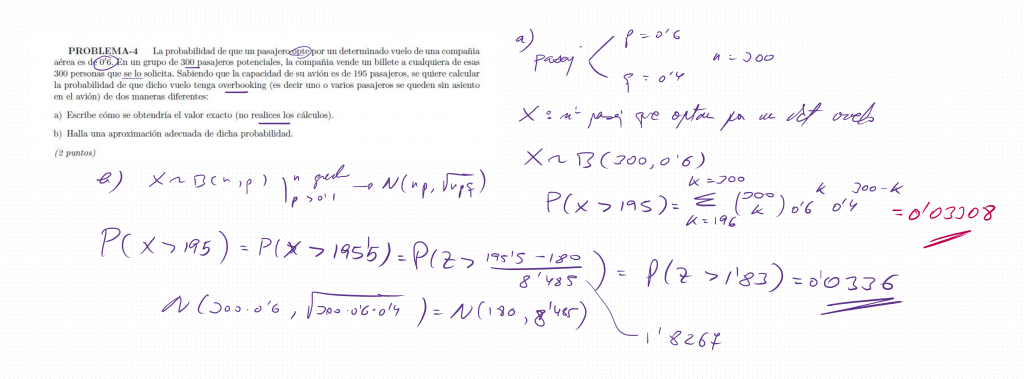 PROBLEMA-4 La probabilidad de que un pasajero opte por un determinado vuelo de una compañia
aérea es de 0'6. En un grupo de 300 pasajeros potenciales, la compañia vende un billete a cualquiera de esas
300 personas que se lo solicita. Sabiendo que la capacidad de su avión es de 195 pasajeros, se quiere calcular
la probabilidad de que dicho vuelo tenga overbooking (es decir uno o varios pasajeros se queden sin asiento
en el avión) de dos maneras diferentes:
a) Escribe cómo se obtendría el valor exacto (no realices los cálculos).
b) Halla una aproximación adecuada de dicha probabilidad.
(2 puntos)
a)
pasaj
p = 0'6
q = 0'4
n = 300
X : nº pasaj que optan por un det vuelo
X ~ B(300, 0'6)
P(X > 195) = Σ (300 k) 0'6^k 0'4^(300-k) = 0'03308
k = 300
k = 196
b) X ~ B(n, p) | n grande p > 0'1 → N(np, √npq)
P(X > 195) = P(X > 195'5) = P(Z > (195'5 - 180) / 8'485) = P(Z > 1'83) = 0'0336
N(300·0'6, √300·0'6·0'4) = N(180, 8'485)
1'8267